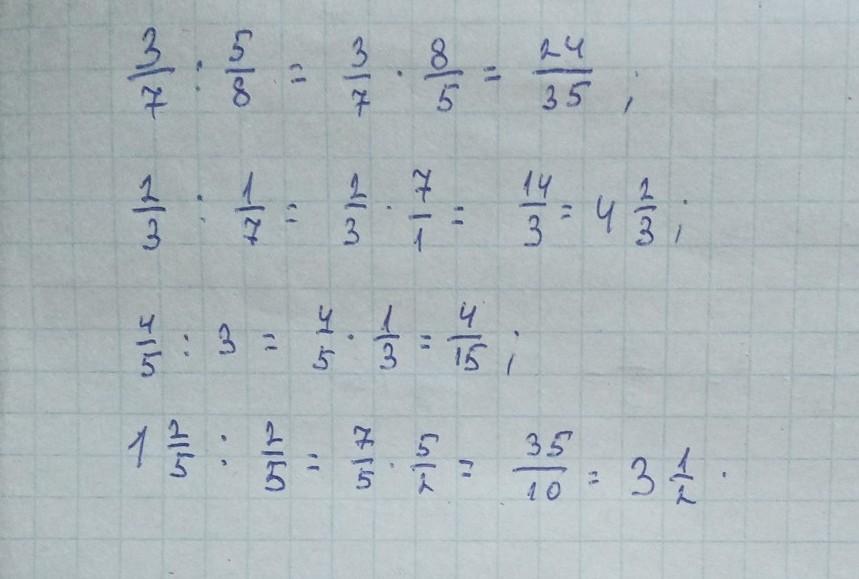 3/7 : 5/8 = 3/7 · 8/5 = 24/35 ;
2/3 : 1/7 = 2/3 · 7/1 = 14/3 = 4 2/3 ;
4/5 : 3 = 4/5 · 1/3 = 4/15 ;
1 2/5 : 2/5 = 7/5 · 5/2 = 35/10 = 3 1/2 .